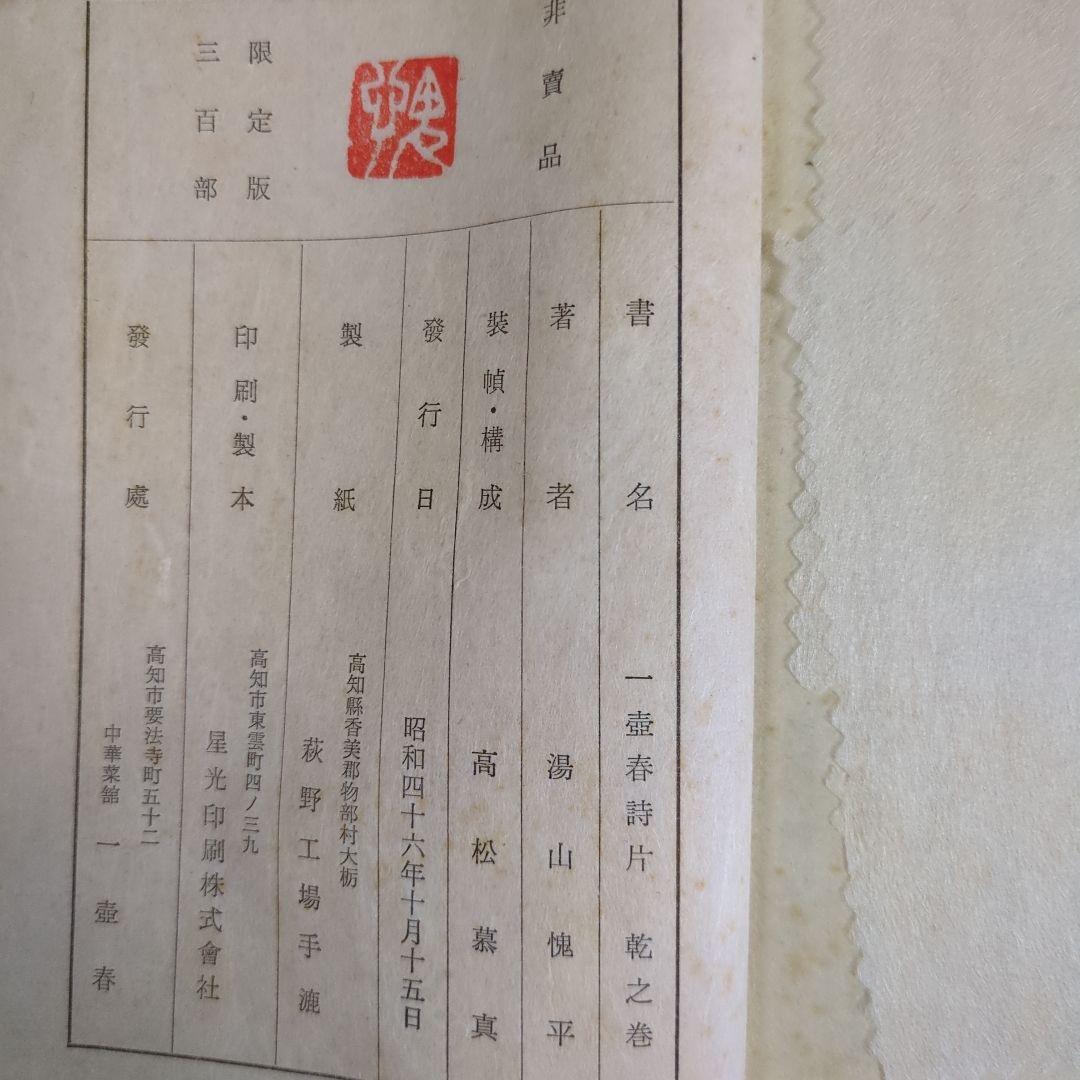 非賣品
限定版
三百部
書名 一壺春詩片 乾之巻
著者 湯山愧平
裝幀・構成 高松慕真
發行日 昭和四十六年十月十五日
製紙 高知縣香美郡物部村大栃
萩野工場手漉
印刷・製本 高知市東雲町四ノ三九
星光印刷株式會社
發行處 高知市要法寺町五十二
中華菜舘 一壺春